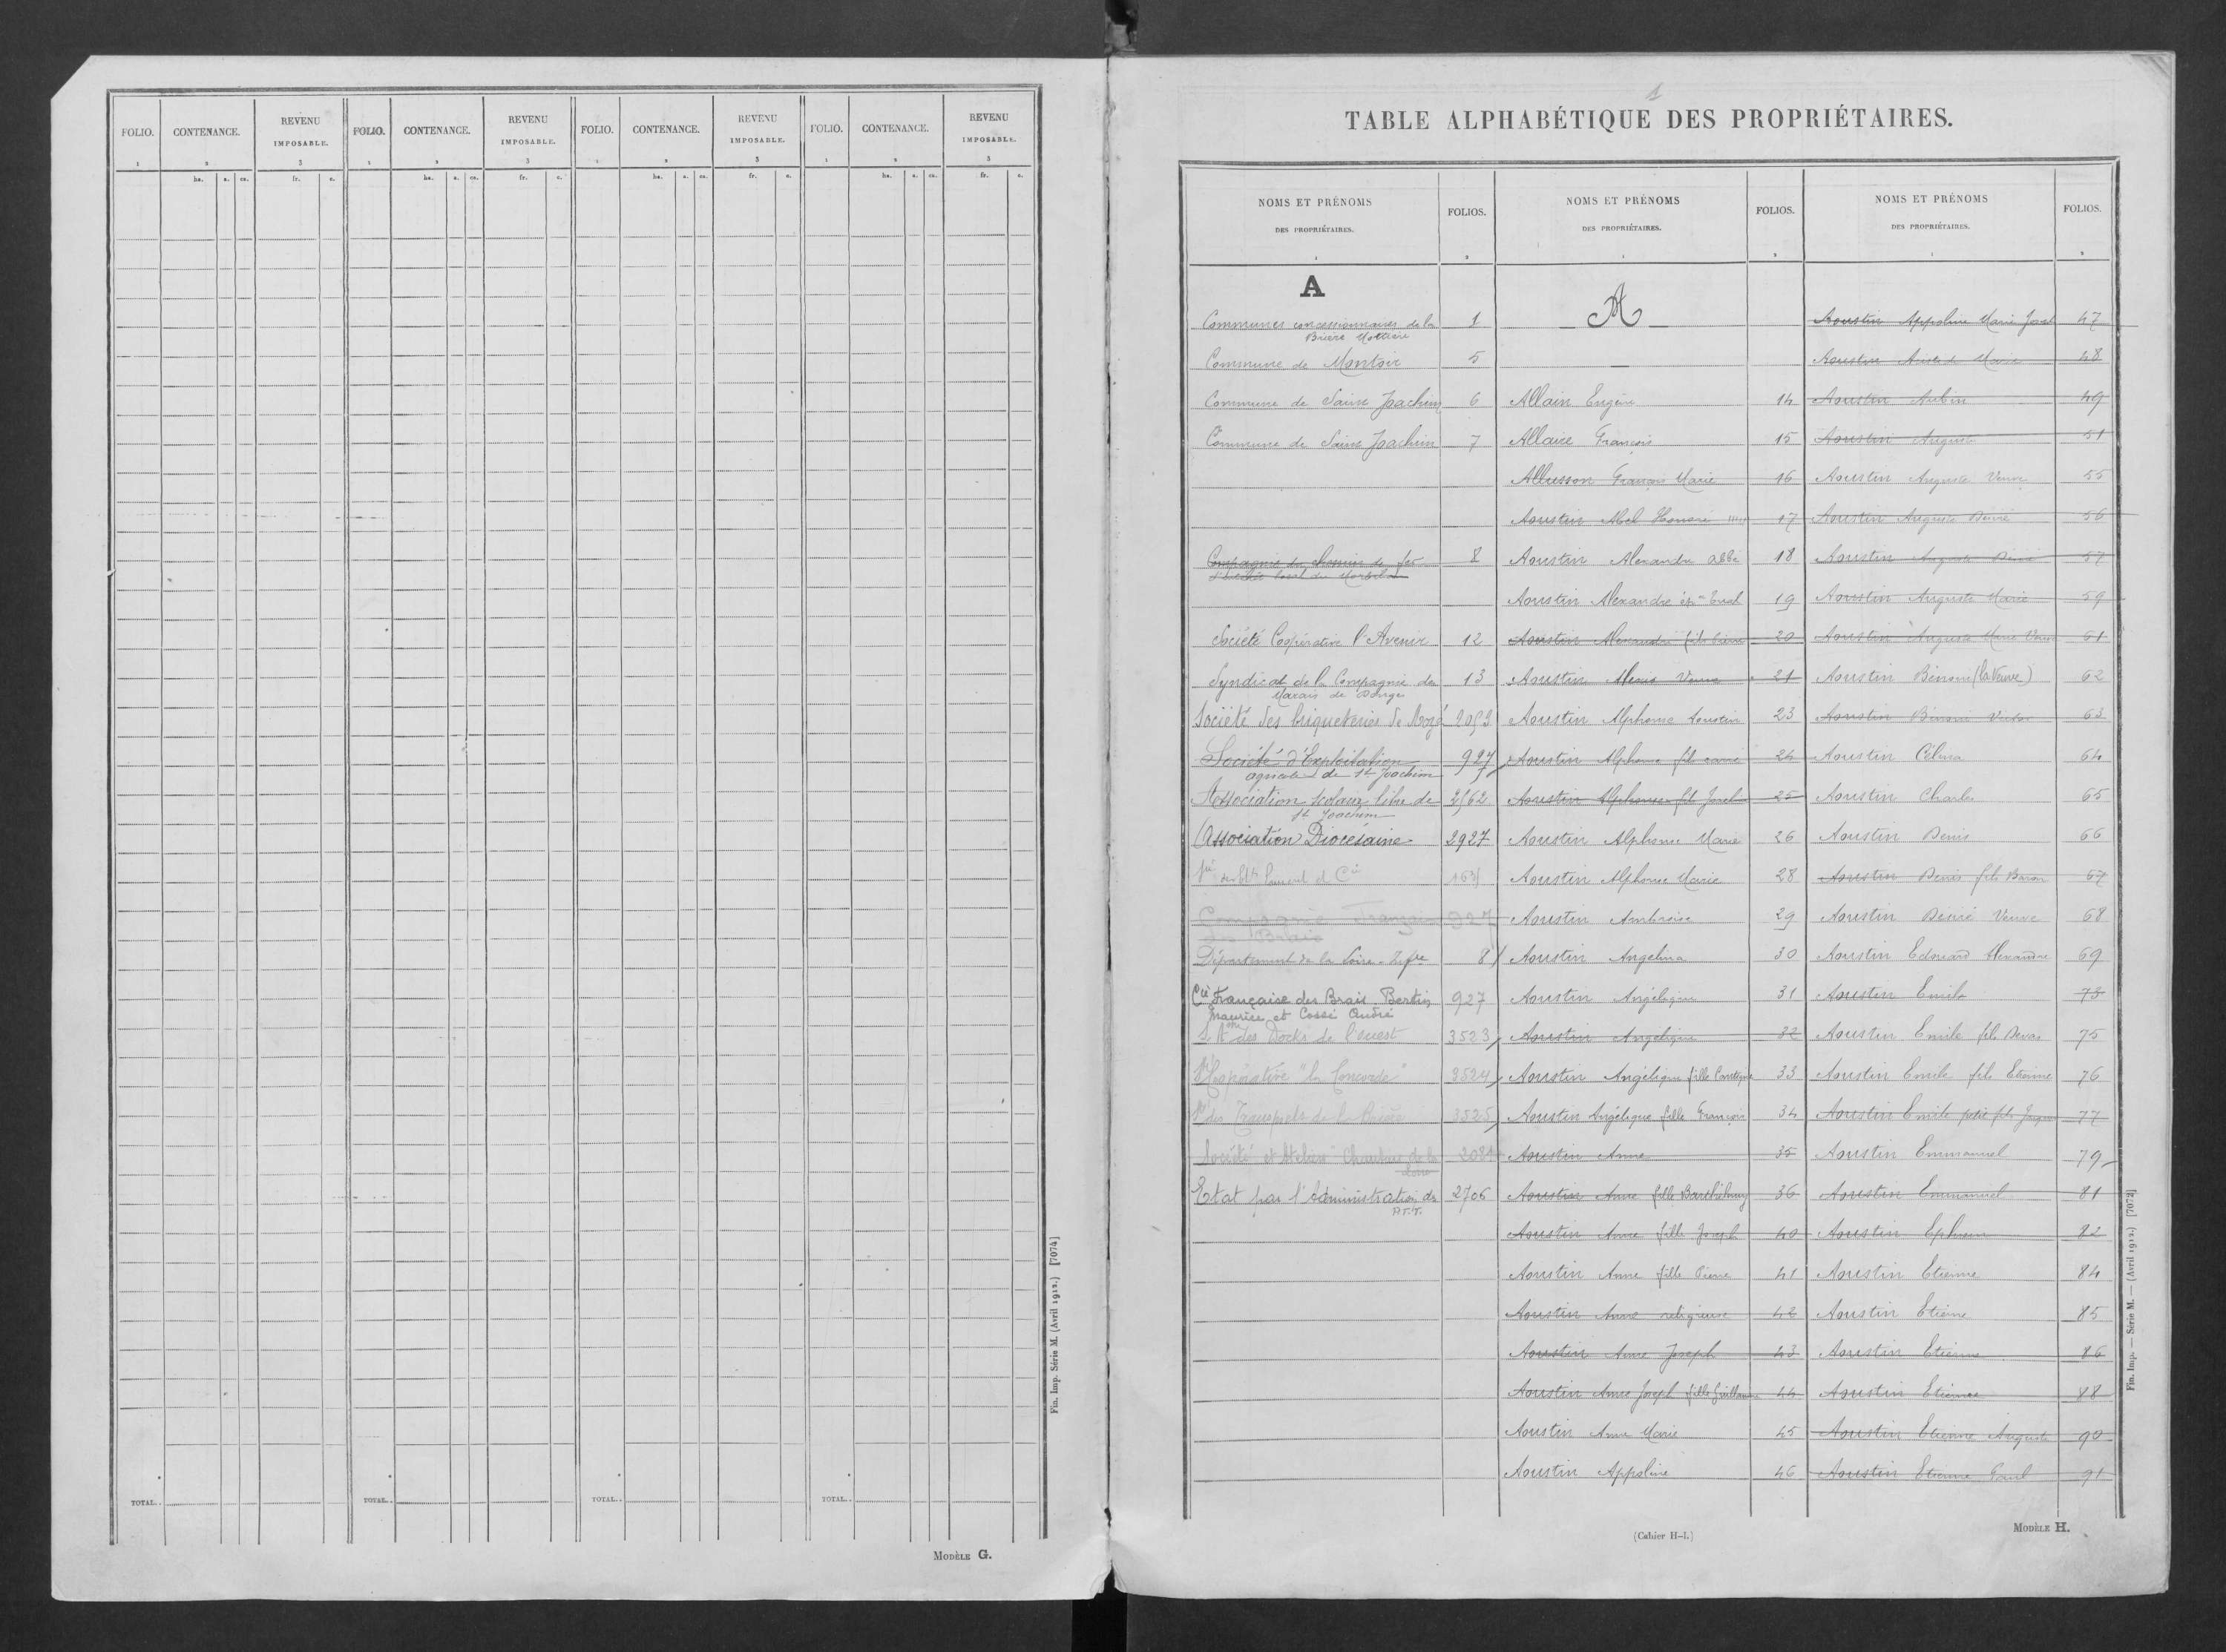 FOLIO. CONTENANCE. REVENU IMPOSABLE. FOLIO. CONTENANCE. REVENU IMPOSABLE. FOLIO. CONTENANCE. REVENU IMPOSABLE. FOLIO. CONTENANCE. REVENU IMPOSABLE.
1 2 3 1 2 3 1 2 3 1 2 3
ha. a. ca. fr. c. ha. a. ca. fr. c. ha. a. ca. fr. c. ha. a. ca. fr. c.
TOTAL.. TOTAL.. TOTAL.. TOTAL..
Fin. Imp. Série M. (Avril 1912.) [7074]
MODÈLE G.
1
TABLE ALPHABÉTIQUE DES PROPRIÉTAIRES.
NOMS ET PRÉNOMS DES PROPRIÉTAIRES. FOLIOS. NOMS ET PRÉNOMS DES PROPRIÉTAIRES. FOLIOS. NOMS ET PRÉNOMS DES PROPRIÉTAIRES. FOLIOS.
1 2 1 2 1 2
A
Communes concessionnaires de la 1
Brière Mottière
Commune de Montoir 5
Commune de Saint Joachim 6
Commune de Saint Joachim 7
Compagnie du chemin de fer 8
d'intérêt local du Morbihan
Société Coopérative l'Avenir 12
Syndicat de la Compagnie des 13
Marais de Donges
Société des briqueteries de
Société d'Exploitation 927
agricole de St Joachim
Association scolaire libre de 2562
St Joachim
Association Diocésaine 2927
et Cie
Compagnie Française 927
des Brais
Département de la Loire-Infre 8
Cie Française des Brais. Bertin 927
Maurice et Cossé André
S. Ame des Docks de l'ouest 3523
Coopérative "la Concorde" 3524
des Transports de la Brière 3525
Société et Ateliers Chantiers de la
Loire
Etat par l'Administration des 2706
P.T.T.
A
Allain Eugène 14
Allaire François 15
Allusson François Marie 16
Aoustin Abel Honoré 17
Aoustin Alexandre abbé 18
Aoustin Alexandre 19
Aoustin Alexandre fils Pierre 20
Aoustin Alexis Veuve 21
Aoustin Alphonse Aoustin 23
Aoustin Alphonse fils 24
Aoustin Alphonse fils Joseph 25
Aoustin Alphonse Marie 26
Aoustin Alphonse Marie 28
Aoustin Ambroise 29
Aoustin Angelina 30
Aoustin Angélique 31
Aoustin Angélique 32
Aoustin Angélique fille 33
Aoustin Angélique fille François 34
Aoustin Anne 35
Aoustin Anne fille Barthélemy 36
Aoustin Anne fille Joseph 40
Aoustin Anne fille Pierre 41
Aoustin Anne religieuse 42
Aoustin Anne Joseph 43
Aoustin Anne Joseph fille Guillaume 44
Aoustin Anne Marie 45
Aoustin Appoline 46
Aoustin Appoline Marie Joseph 47
Aoustin Aristide Marie 48
Aoustin Aubin 49
Aoustin Auguste 51
Aoustin Auguste Veuve 55
Aoustin Auguste Désiré 56
Aoustin Auguste Désiré 57
Aoustin Auguste Marie 59
Aoustin Auguste Marie Veuve 61
Aoustin Benoni (la Veuve) 62
Aoustin Benoni Victor 63
Aoustin Célina 64
Aoustin Charles 65
Aoustin Denis 66
Aoustin Denis fils 67
Aoustin Désiré Veuve 68
Aoustin Edouard Alexandre 69
Aoustin Emile 73
Aoustin Emile fils 75
Aoustin Emile fils Etienne 76
Aoustin Emile petit fils 77
Aoustin Emmanuel 79
Aoustin Emmanuel 81
Aoustin Ephrem 82
Aoustin Etienne 84
Aoustin Etienne 85
Aoustin Etienne 86
Aoustin Etienne 88
Aoustin Etienne Auguste 90
Aoustin Etienne Paul 91
(Cahier H-1.)
MODÈLE H.
Fin. Imp. — Série M. — (Avril 1912.) [7072]